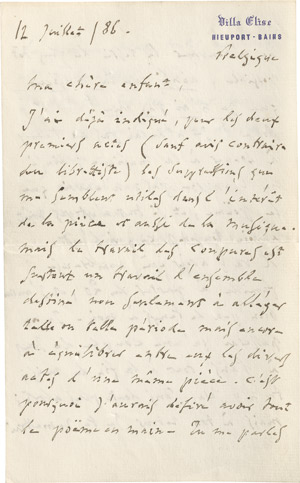 Villa Elise
NIEUPORT-BAINS
12 Juillet / 86.
Belgique
Ma chère enfant,
J'ai déjà indiqué, pour les deux
premiers actes (sauf avis contraire
du librettiste) les suppressions que
me semblent utiles dans l'intérêt
de la pièce et aussi de la musique.
Mais le travail des coupures est
surtout un travail d'ensemble
destiné non seulement à alléger
telle ou telle période mais encore
à équilibrer entre eux les divers
actes d'une même pièce. C'est
pourquoi j'aurais désiré avoir tout
le poème en main. Tu me parles